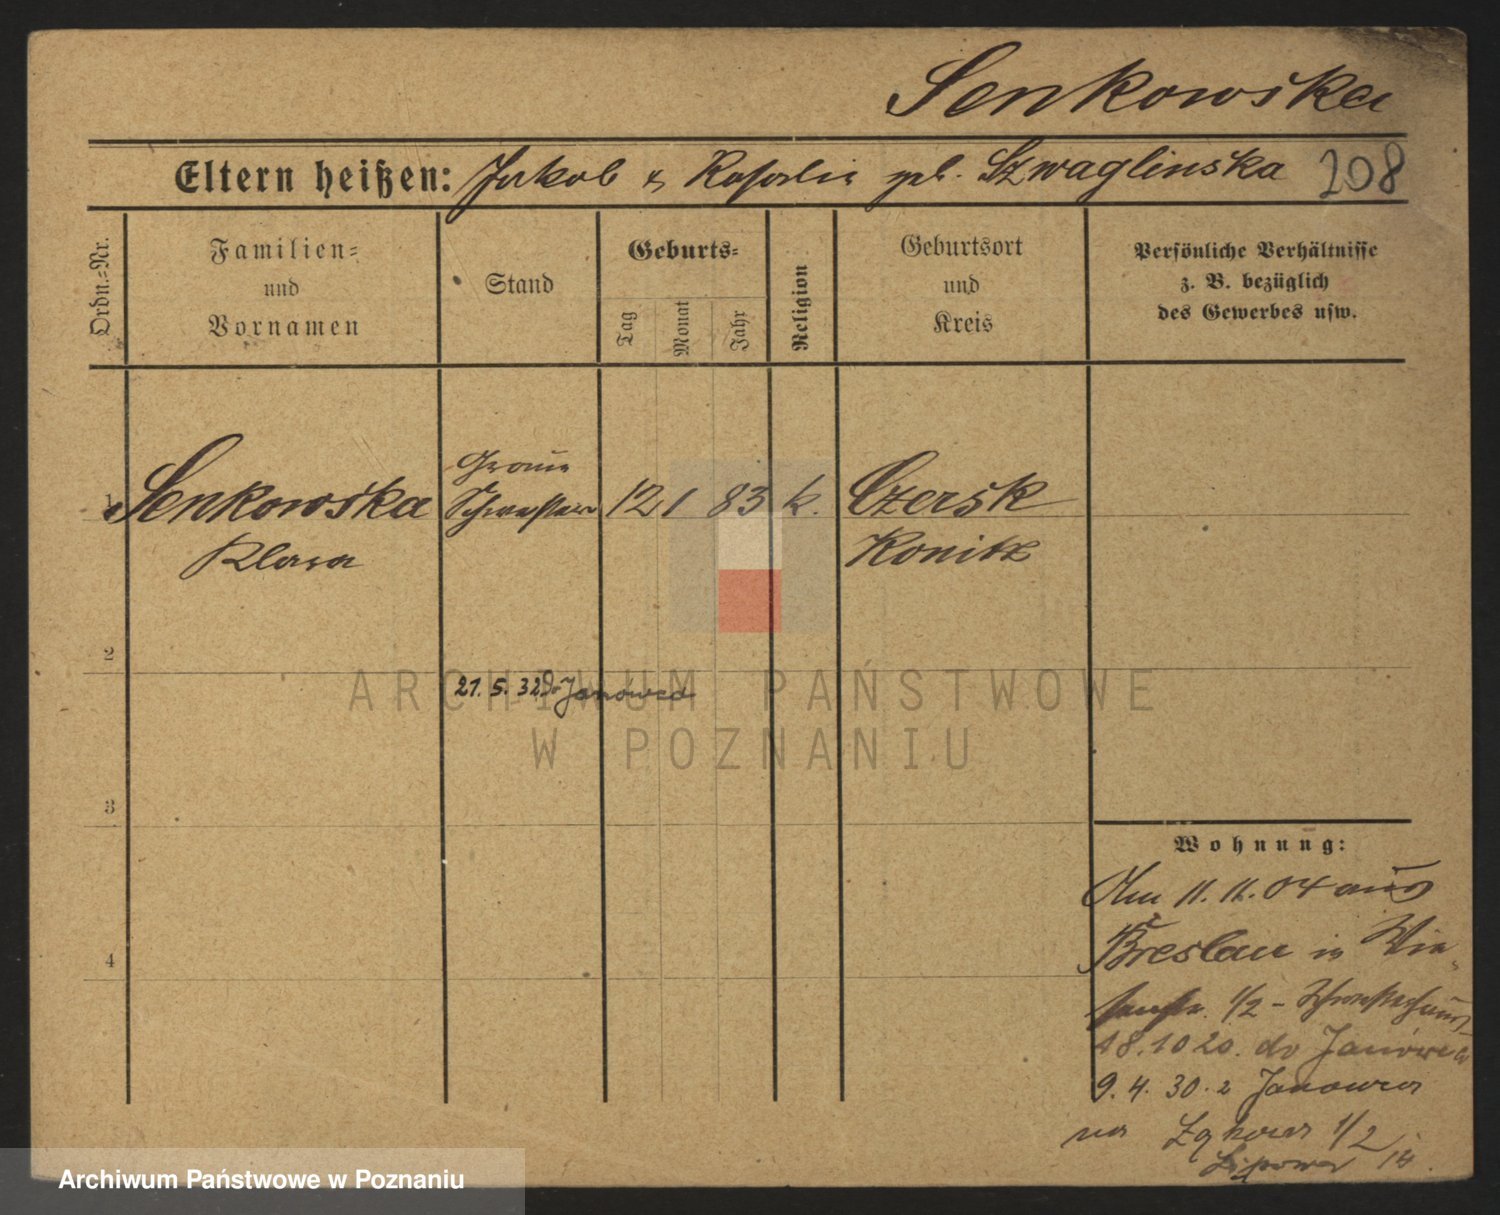 Senkowska
Eltern heißen: Jakob & Rosalie geb. Szwaglinska 208
Ordn.-Nr.
Familien-
und
Vornamen
Stand
Geburts-
Tag
Monat
Jahr
Religion
Geburtsort
und
Kreis
Persönliche Verhältnisse
z. B. bezüglich
des Gewerbes usw.
Graue
1 Senkowska Schwester 12 1 83 k. Czersk
Klara Konitz
2
21. 5. 32 do Janówca
3
4
Wohnung:
Am 11. 11. 04 aus
Breslau in Wie-
senstr. 1/2 - Schwesternhaus
18.10 20. do Janówca
9. 4. 30 z Janowca
na Łąkowa 1/2
Lipowa 14.
ARCHIWUM PAŃSTWOWE
W POZNANIU
Archiwum Państwowe w Poznaniu